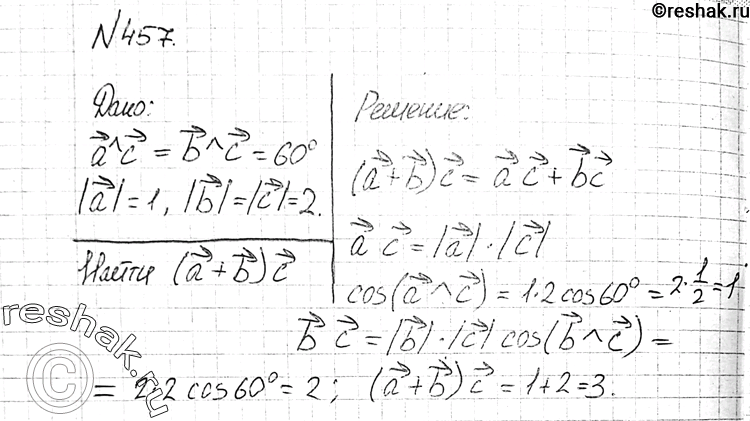 ©reshak.ru
№457.
Дано:
a⃗^c⃗ = b⃗^c⃗ = 60°
|a⃗|=1, |b⃗|=|c⃗|=2.
Найти (a⃗+b⃗)c⃗
Решение:
(a⃗+b⃗)c⃗ = a⃗ c⃗ + b⃗c⃗
a⃗ c⃗ = |a⃗|·|c⃗|
cos(a⃗^c⃗) = 1·2cos60° = 2·1/2=1
b⃗ c⃗ = |b⃗|·|c⃗| cos(b⃗^c⃗) =
= 2·2 cos60° = 2; (a⃗+b⃗)c⃗ = 1+2=3.
reshak.ru
©